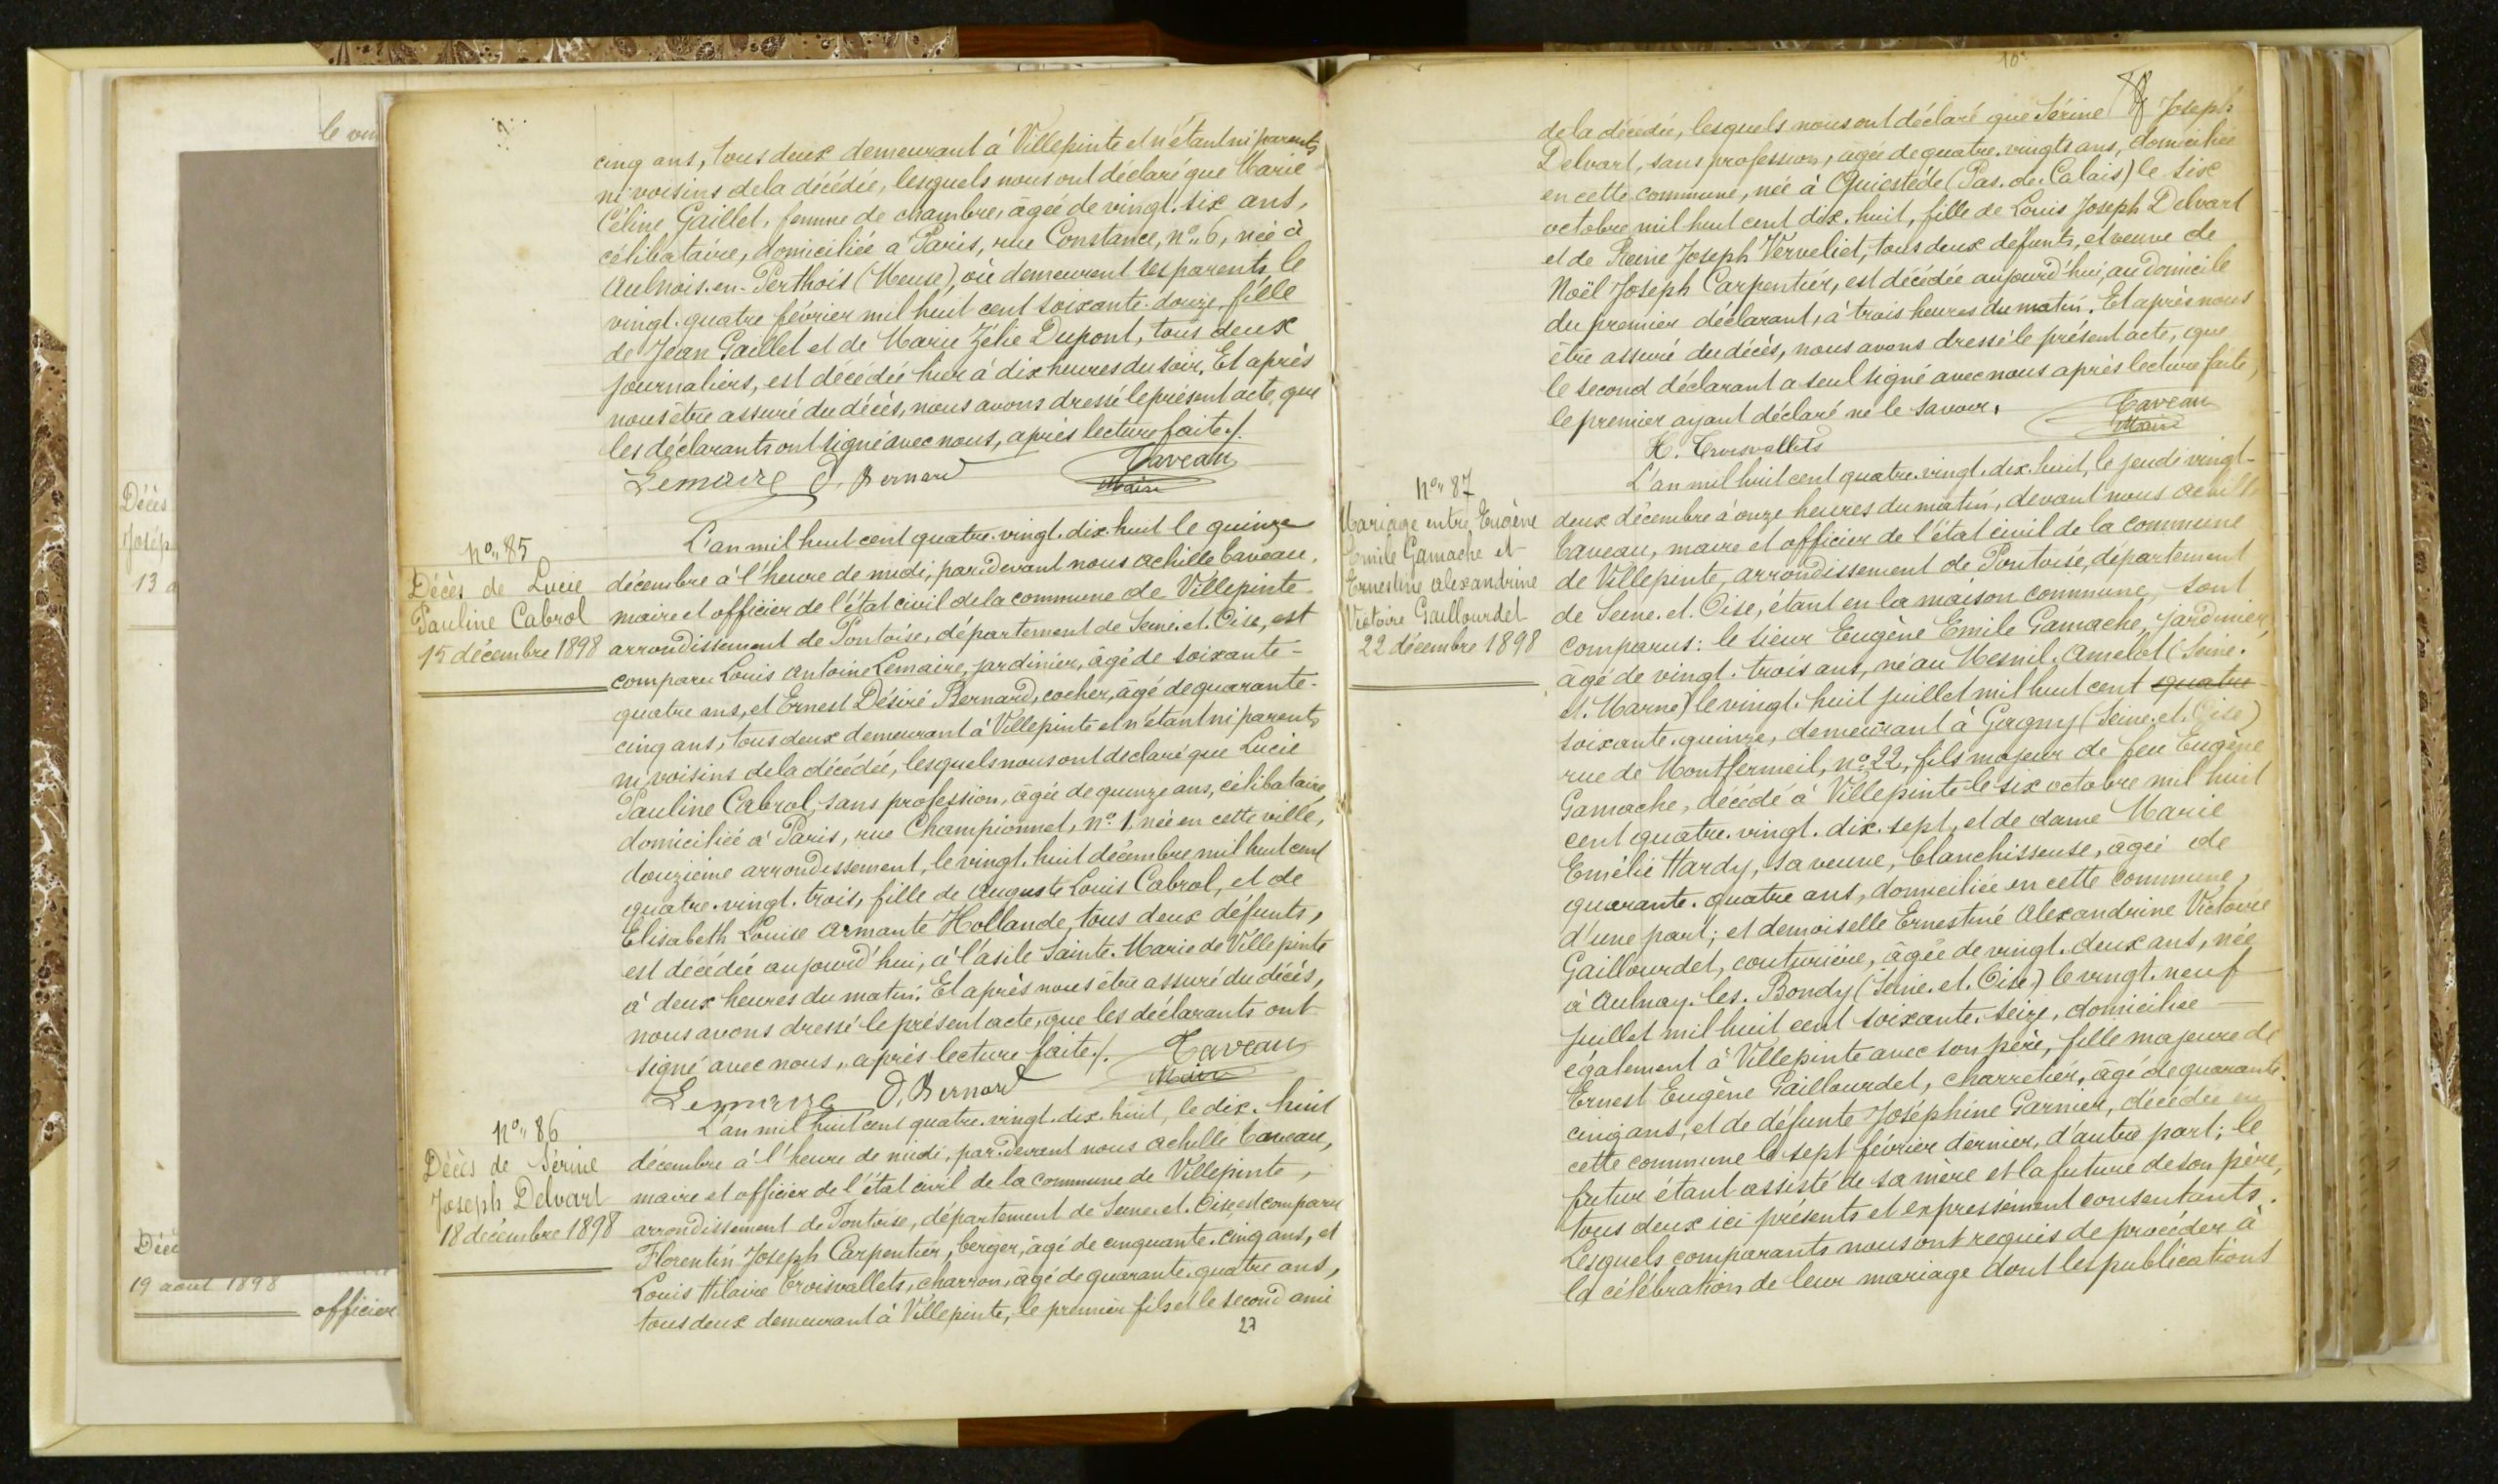 le vin
Décès
Josép
13 a
Décè
19 aout 1898
officier
cinq ans, tous deux demeurant à Villepinte et n'étant ni parents
ni voisins de la décédée, lesquels nous ont déclaré que Marie
Céline Gaillet, femme de chambre, âgée de vingt-six ans,
célibataire, domiciliée à Paris, rue Constance, n° 6, née à
Aulnois-en-Perthois (Meuse), où demeurent ses parents, le
vingt-quatre février mil huit cent soixante-douze, fille
de Jean Gaillet et de Marie Zélie Dupont, tous deux
journaliers, est décédée hier à dix heures du soir. Et après
nous être assuré du décès, nous avons dressé le présent acte, que
les déclarants ont signé avec nous, après lecture faite ./.
Lemaire D. Bernard Taveau
Maire
n° 85
Décès de Lucie
Pauline Cabrol
15 décembre 1898
L'an mil huit cent quatre-vingt-dix-huit le quinze
décembre à l'heure de midi, par devant nous Achille Taveau,
maire et officier de l'état civil de la commune de Villepinte
arrondissement de Pontoise, département de Seine-et-Oise, est
comparu Louis Antoine Lemaire, jardinier, âgé de soixante-
quatre ans, et Ernest Désiré Bernard, cocher, âgé de quarante-
cinq ans, tous deux demeurant à Villepinte et n'étant ni parents
ni voisins de la décédée, lesquels nous ont déclaré que Lucie
Pauline Cabrol, sans profession, âgée de quinze ans, célibataire,
domiciliée à Paris, rue Championnet, n° 1, née en cette ville,
douzième arrondissement, le vingt-huit décembre mil huit cent
quatre-vingt-trois, fille de Auguste Louis Cabrol, et de
Elisabeth Louise Armante Hollande, tous deux défunts,
est décédée aujourd'hui, à l'asile Sainte-Marie de Villepinte
à deux heures du matin. Et après nous être assuré du décès,
nous avons dressé le présent acte, que les déclarants ont
signé avec nous, après lecture faite ./. Taveau
Lemaire D. Bernard Maire
n° 86
Décès de Sérine
Joseph Delvart
18 décembre 1898
L'an mil huit cent quatre-vingt-dix-huit, le dix-huit
décembre à l'heure de midi, par devant nous Achille Taveau,
maire et officier de l'état civil de la commune de Villepinte,
arrondissement de Pontoise, département de Seine-et-Oise, est comparu
Florentin Joseph Carpentier, berger, âgé de cinquante-cinq ans, et
Louis Hilaire Croisvallets, charron, âgé de quarante-quatre ans,
tous deux demeurant à Villepinte, le premier fils et le second ami
27
10
de la décédée, lesquels nous ont déclaré que Sérine Joseph
Delvart, sans profession, âgée de quatre-vingts ans, domiciliée
en cette commune, née à Quiestède (Pas-de-Calais) le six
octobre mil huit cent dix-huit, fille de Louis Joseph Delvart
et de Reine Joseph Verveliet, tous deux défunts, et veuve de
Noël Joseph Carpentier, est décédée aujourd'hui, au domicile
du premier déclarant, à trois heures du matin. Et après nous
être assuré du décès, nous avons dressé le présent acte, que
le second déclarant a seul signé avec nous après lecture faite,
le premier ayant déclaré ne le savoir. Taveau
H. Croisvallets Maire
n° 87
Mariage entre Eugène
Emile Gamache et
Ernestine Alexandrine
Victoire Gaillourdet
22 décembre 1898
L'an mil huit cent quatre-vingt-dix-huit, le jeudi vingt-
deux décembre à onze heures du matin, devant nous Achille
Taveau, maire et officier de l'état civil de la commune
de Villepinte, arrondissement de Pontoise, département
de Seine-et-Oise, étant en la maison commune, sont
comparus: le sieur Eugène Emile Gamache, jardinier,
âgé de vingt-trois ans, né au Mesnil-Amelot (Seine-
et-Marne) le vingt-huit juillet mil huit cent quatre
soixante-quinze, demeurant à Gagny (Seine-et-Oise)
rue de Montfermeil, n° 22, fils majeur de feu Eugène
Gamache, décédé à Villepinte le six octobre mil huit
cent quatre-vingt-dix-sept, et de dame Marie
Emélie Hardy, sa veuve, blanchisseuse, âgée de
quarante-quatre ans, domiciliée en cette commune,
d'une part; et demoiselle Ernestine Alexandrine Victoire
Gaillourdet, couturière, âgée de vingt-deux ans, née
à Aulnay-les-Bondy (Seine-et-Oise) le vingt-neuf
juillet mil huit cent soixante-seize, domiciliée
également à Villepinte avec son père, fille majeure de
Ernest Eugène Gaillourdet, charretier, âgé de quarante-
cinq ans, et de défunte Joséphine Garnier, décédée en
cette commune le sept février dernier, d'autre part; le
futur étant assisté de sa mère et la future de son père,
tous deux ici présents et expressément consentants.
Lesquels comparants nous ont requis de procéder à
la célébration de leur mariage dont les publications